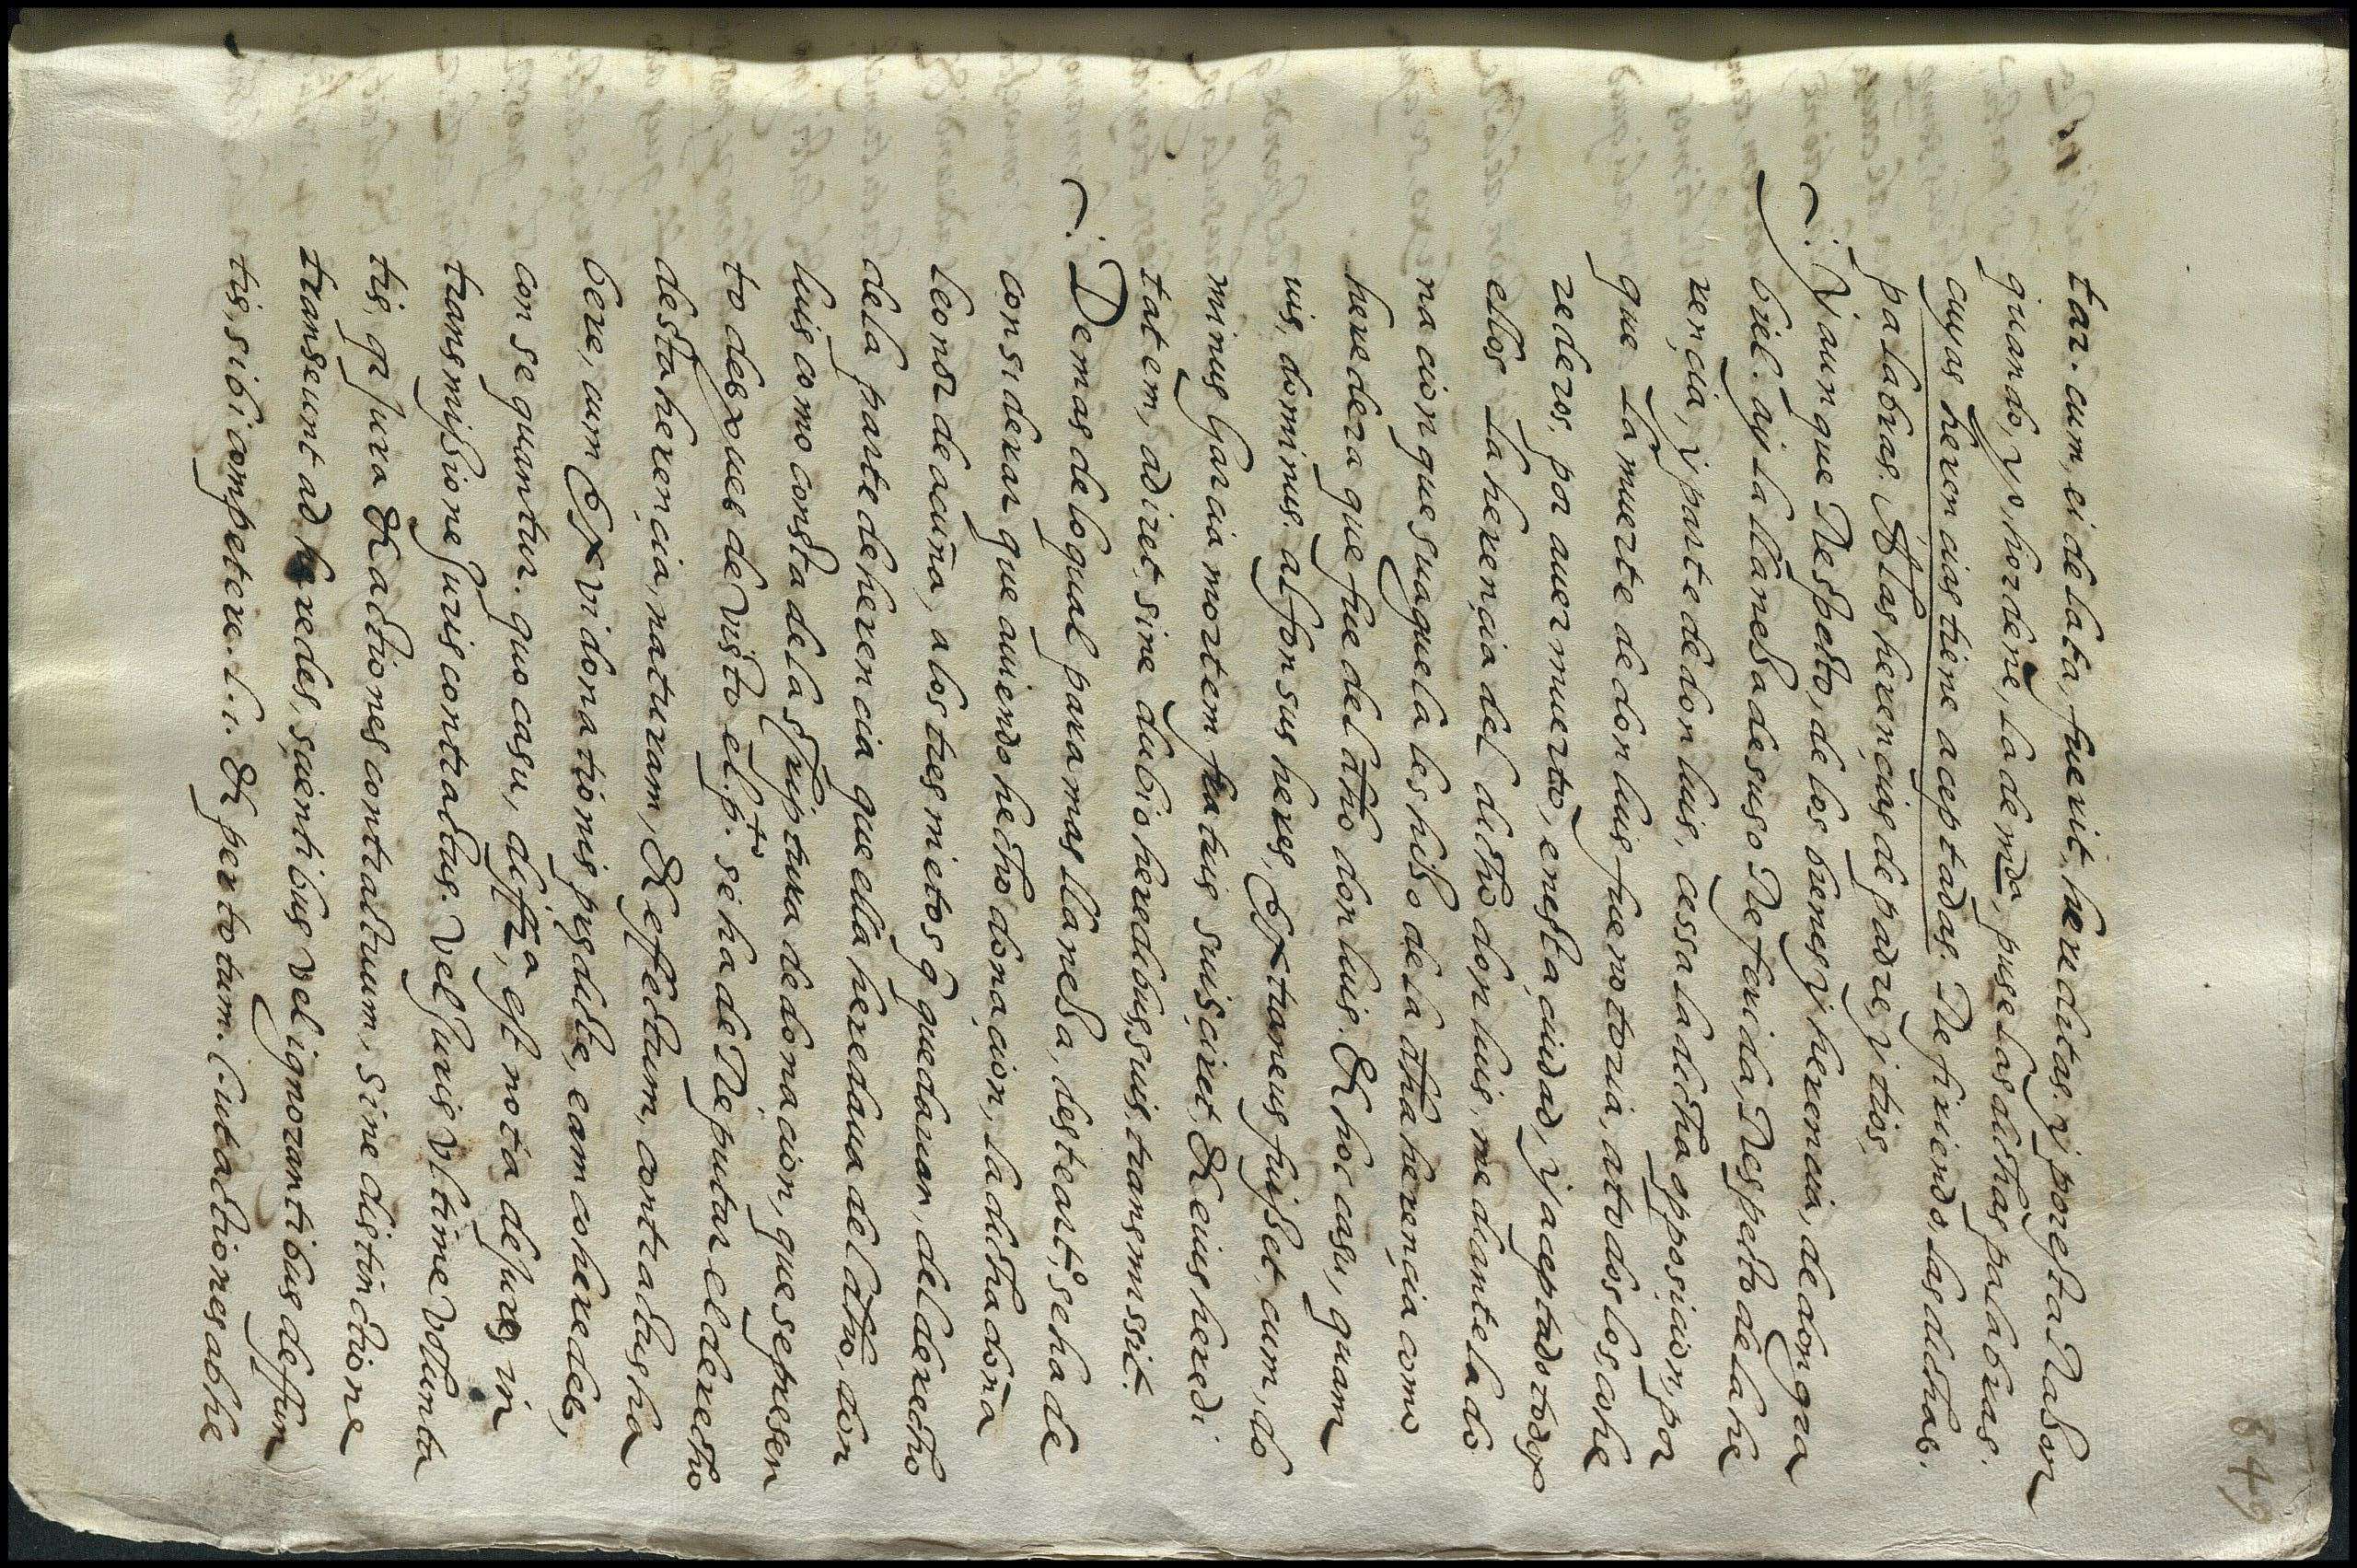 649
tar. cum, ei delata, fuerit, hereditas. y por esta Rason
quando, yo, hordene, la demda, puse las dichas palabras.
cuyas herencias tiene aceptadas. Refiriendo, las dichas.
palabras. A las herencias de padre, y tios.
y aunque Respecto, de los bienes y herencia, de don ga
briel. ay la llanesa de suso Referida, Respecto de la he
rencia, y parte de don luis, cessa la dicha opposicion, por
que la muerte de don luis fue notoria, a todos los cohe
rederos. por auer muerto, en esta ciudad, y aceptado todos
ellos la herencia del dicho don luis, mediante la do
nacion que su aguela les hiso de la dha herencia como
heredera que fue del dho don luis. & hoc casu, quam
uis, dominus. alfonsus heres, extraneus fuisset, cum, do
minus garcia mortem fratris sui sciret, & eius heredi
tatem, adiret, sine dubio heredibus suis, transmissit.
Demas de lo qual para mas llanesa, desteartº, se ha de
considerar que auiendo hecho donacion, la dicha doña
leonor de acuña, a los tres nietos q quedaron, del derecho
de la parte de herencia que ella heredaua del dho, don
luis como consta de la scriptura de donacion, que se presen
to despues de visto el pto. se ha de Reputar el derecho
desta herencia, naturam, & effectum, contractus ha
bere, cum ex vi donationis predicte, eam coheredes,
consequantur. quo casu, diffª, est nota de jure, in
transmissione juris contractus. vel juris vltime volunta
tis, qª jura & actiones contractuum, sine distinctione
transeunt ad heredes, scientibus vel ignorantibus deffun
tis, sibi competere. l. i. & per totum. C. ut actiones ab he